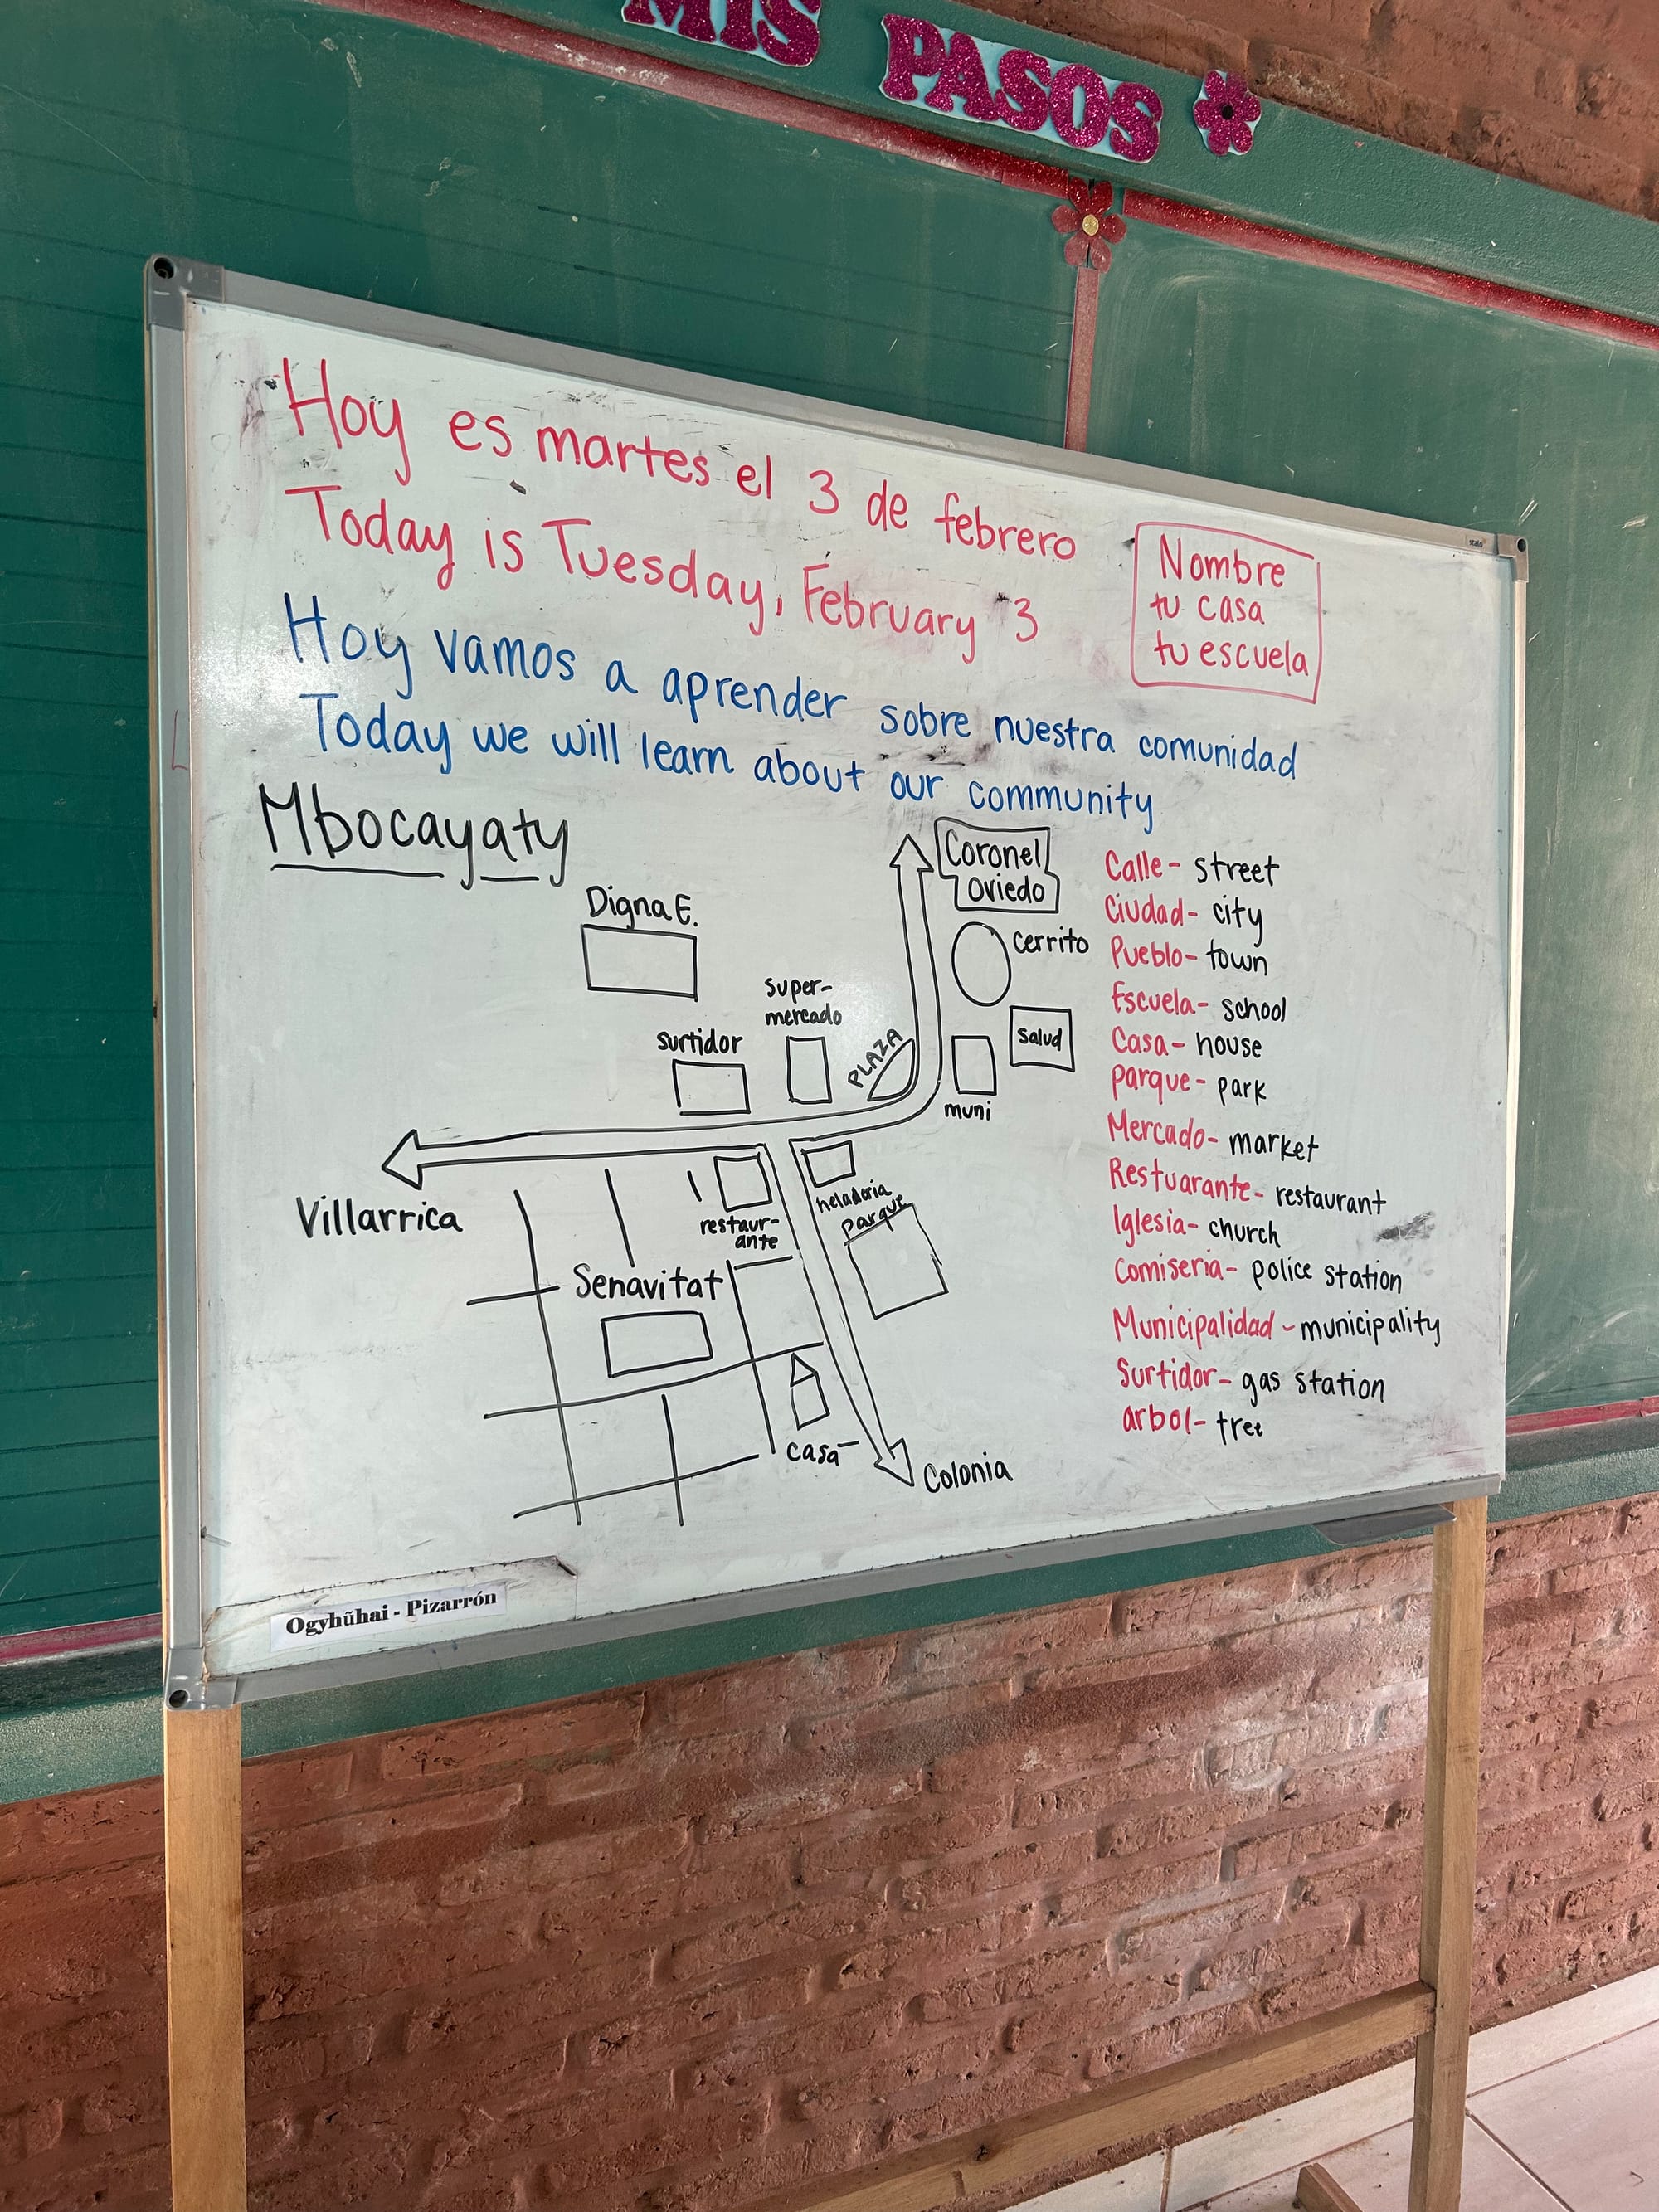 MIS PASOS
Hoy es martes el 3 de febrero
Today is Tuesday, February 3
Nombre
tu casa
tu escuela
Hoy vamos a aprender sobre nuestra comunidad
Today we will learn about our community
Mbocayaty
Coronel
Oviedo
Digna E.
cerrito
super-
mercado
surtidor
PLAZA
Salud
muni
Villarrica
restaur-
ante
heladeria
parque
Senavitat
casa
Colonia
Calle - street
Ciudad - city
Pueblo - town
Escuela - school
Casa - house
parque - park
Mercado - market
Restuarante - restaurant
Iglesia - church
Comiseria - police station
Municipalidad - municipality
Surtidor - gas station
arbol - tree
Ogyhũhai - Pizarrón